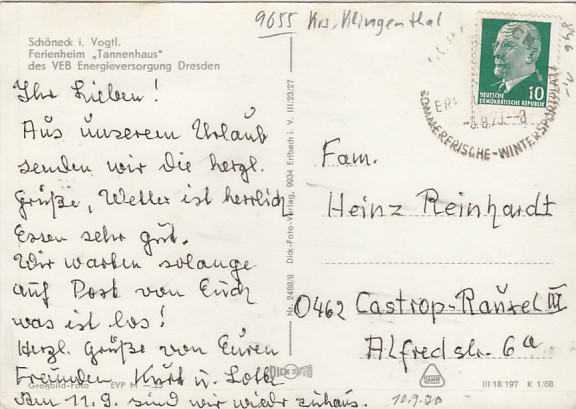 9655 Krs. Klingenthal
Schöneck i. Vogtl.
Ferienheim „Tannenhaus"
des VEB Energieversorgung Dresden
Ihr Lieben!
Aus unserem Urlaub
senden wir die herzl.
Grüße, Wetter ist herrlich
Essen sehr gut.
Wir warten solange
auf Post von Euch
was ist los!
Herzl. Grüße von Euren
Freunden Kurt u. Lotte
Am 11.9. sind wir wieder zuhaus.
10.9.70
Großbild-Foto EVP
Nr. 2488/8 Dick-Foto-Verlag, 9934 Erlbach i. V. III/23/27
DICK
10
DEUTSCHE
DEMOKRATISCHE REPUBLIK
SOMMERFRISCHE-WINTERSPORTPLATZ
Fam.
Heinz Reinhardt
0462 Castrop-Rauxel III
Alfredstr. 6a
III/18/197 K 1/68